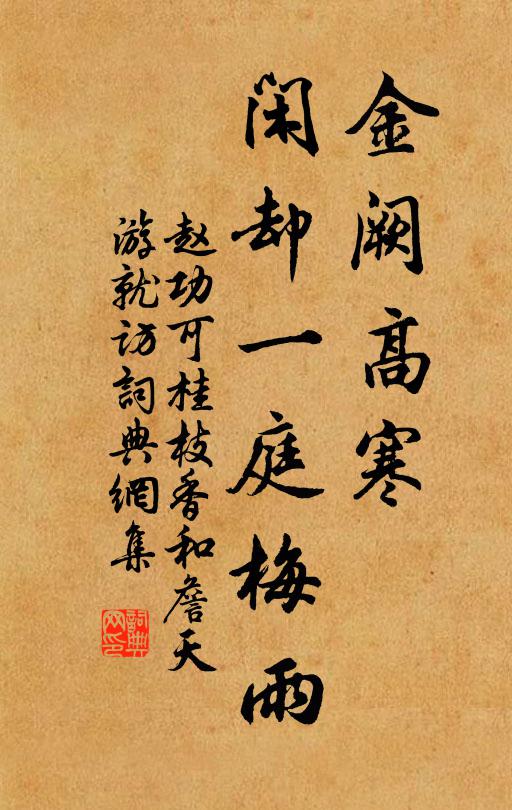 金阙高寒
闲却一庭梅雨
赵功可桂枝香和詹天
游就访詞典網集
詞典
网印